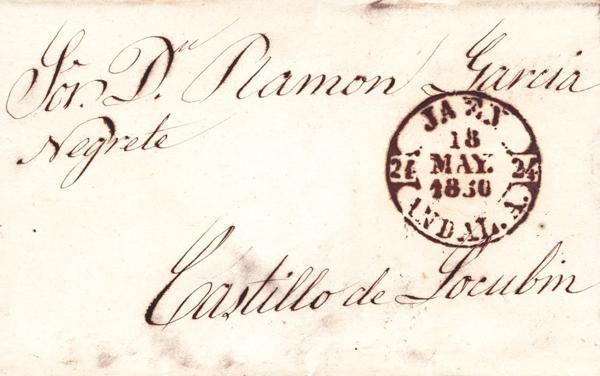 Sōr. Dⁿ. Ramon Garcia
Negrete
JAEN
18
MAY.
1850
24 24
ANDAL. A.
Castillo de Locubin